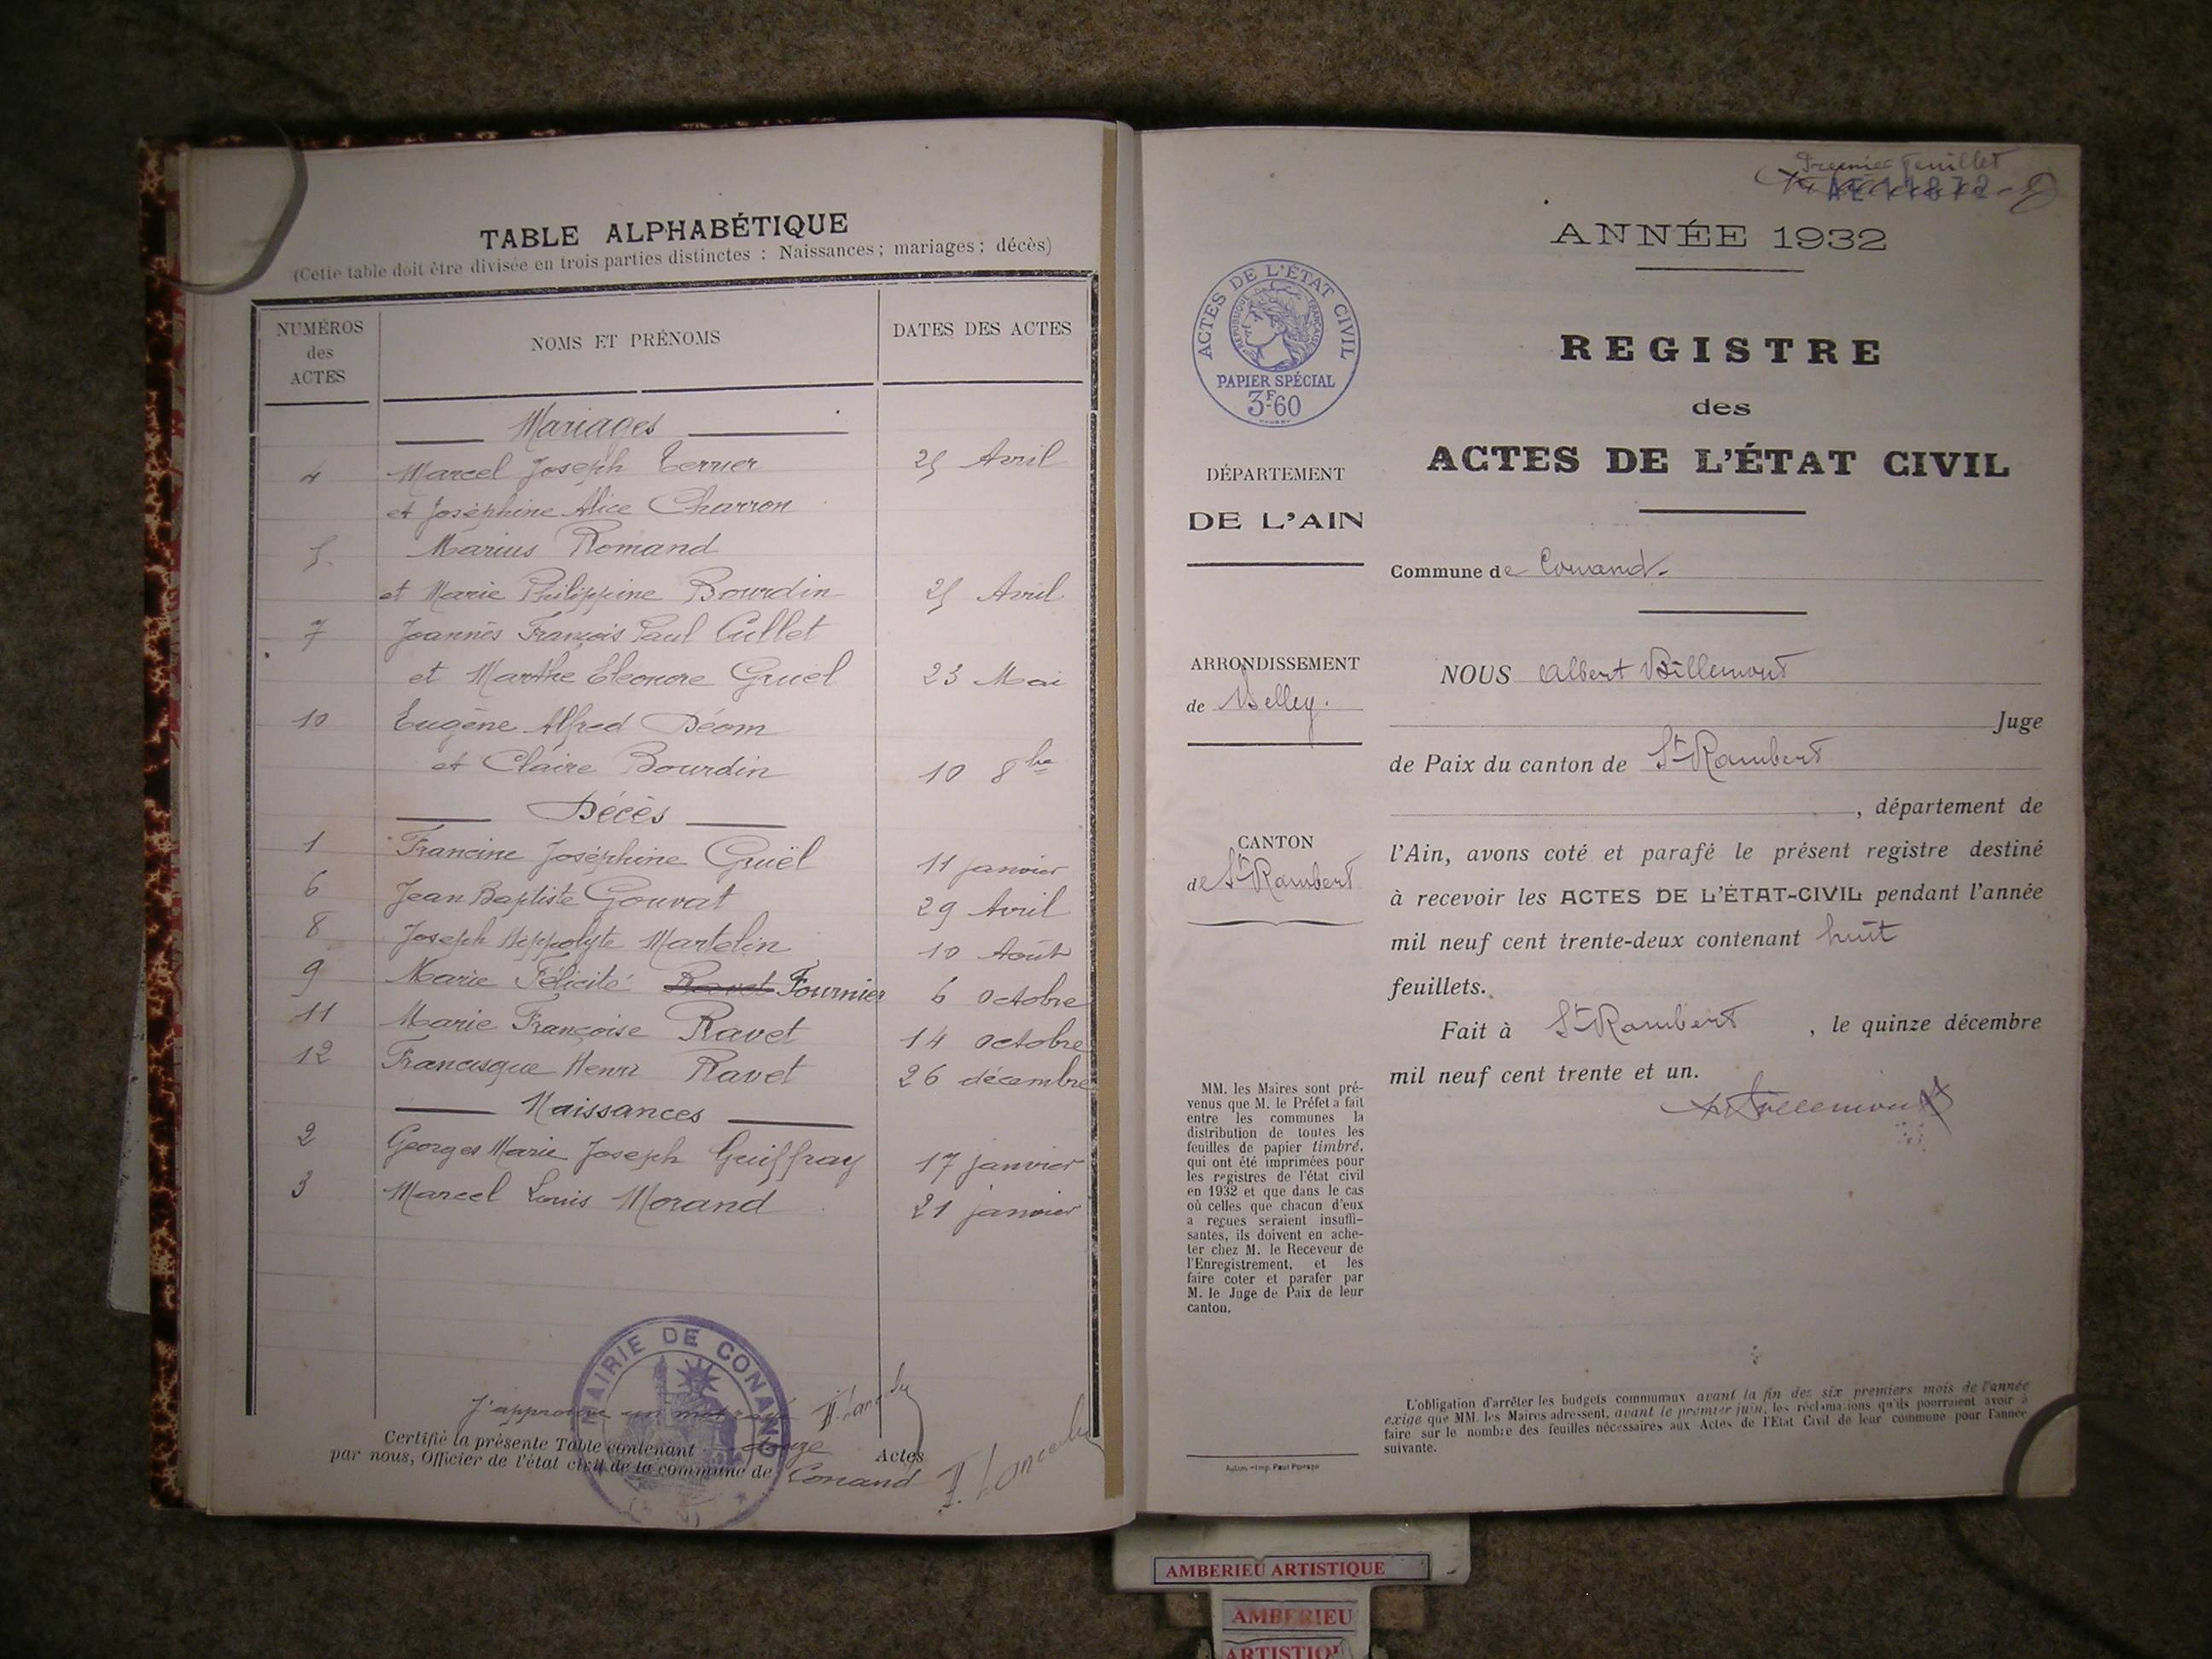 TABLE ALPHABÉTIQUE
(Cette table doit être divisée en trois parties distinctes : Naissances ; mariages ; décès)
NUMÉROS des ACTES
NOMS ET PRÉNOMS
DATES DES ACTES
Mariages
4 Marcel Joseph Terrier 25 Avril
et Joséphine Alice Charron
5. Marius Romand
et Marie Philippine Bourdin 25 Avril
7 Joannès François Paul Cullet
et Marthe Eleonore Gruel 23 Mai
10 Eugène Alfred Déom
et Claire Bourdin 10 8bre
Décès
1 Francine Joséphine Gruël 11 janvier
6 Jean Baptiste Gouvat 29 Avril
8 Joseph Hippolyte Martelin 10 Août
9 Marie Félicité Ravet Fournier 6 octobre
11 Marie Françoise Ravet 14 octobre
12 Francisque Henri Ravet 26 décembre
Naissances
2 Georges Marie Joseph Guiffray 17 janvier
3 Marcel Louis Morand 21 janvier
MAIRIE DE CONAND
J'approuve un mot rayé
Certifié la présente Table contenant douze Actes
par nous, Officier de l'état civil de la commune de Conand
Premier feuillet
AE 11872
ANNÉE 1932
REGISTRE
des
ACTES DE L'ÉTAT CIVIL
ACTES DE L'ÉTAT CIVIL
RÉPUBLIQUE FRANÇAISE
PAPIER SPÉCIAL
3F60
DÉPARTEMENT
DE L'AIN
Commune de Conand.
ARRONDISSEMENT
de Belley.
CANTON
de St Rambert
MM. les Maires sont pré-
venus que M. le Préfet a fait
entre les communes la
distribution de toutes les
feuilles de papier timbré,
qui ont été imprimées pour
les registres de l'état civil
en 1932 et que dans le cas
où celles que chacun d'eux
a reçues seraient insuffi-
santes, ils doivent en ache-
ter chez M. le Receveur de
l'Enregistrement, et les
faire coter et parafer par
M. le Juge de Paix de leur
canton.
NOUS Albert Billemont
Juge
de Paix du canton de St Rambert
, département de
l'Ain, avons coté et parafé le présent registre destiné
à recevoir les ACTES DE L'ÉTAT-CIVIL pendant l'année
mil neuf cent trente-deux contenant huit
feuillets.
Fait à St Rambert , le quinze décembre
mil neuf cent trente et un.
L'obligation d'arrêter les budgets communaux avant la fin des six premiers mois de l'année
exige que MM. les Maires adressent, avant le premier juin, les réclamations qu'ils pourraient avoir à
faire sur le nombre des feuilles nécessaires aux Actes de l'Etat Civil de leur commune pour l'année
suivante.
AMBERIEU ARTISTIQUE
AMBERIEU